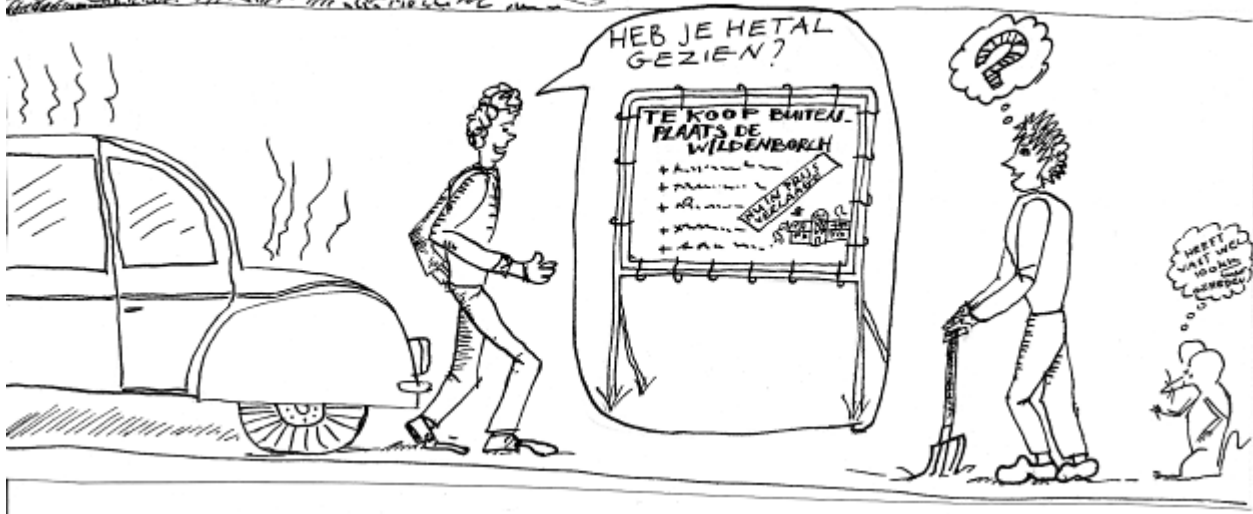 HEB JE HET AL
GEZIEN?
TE KOOP BUITEN-
PLAATS DE
WILDENBORCH
NU IN PRIJS
VERLAAGD
HEEFT
VAST WEL
100 km
GEREDEN